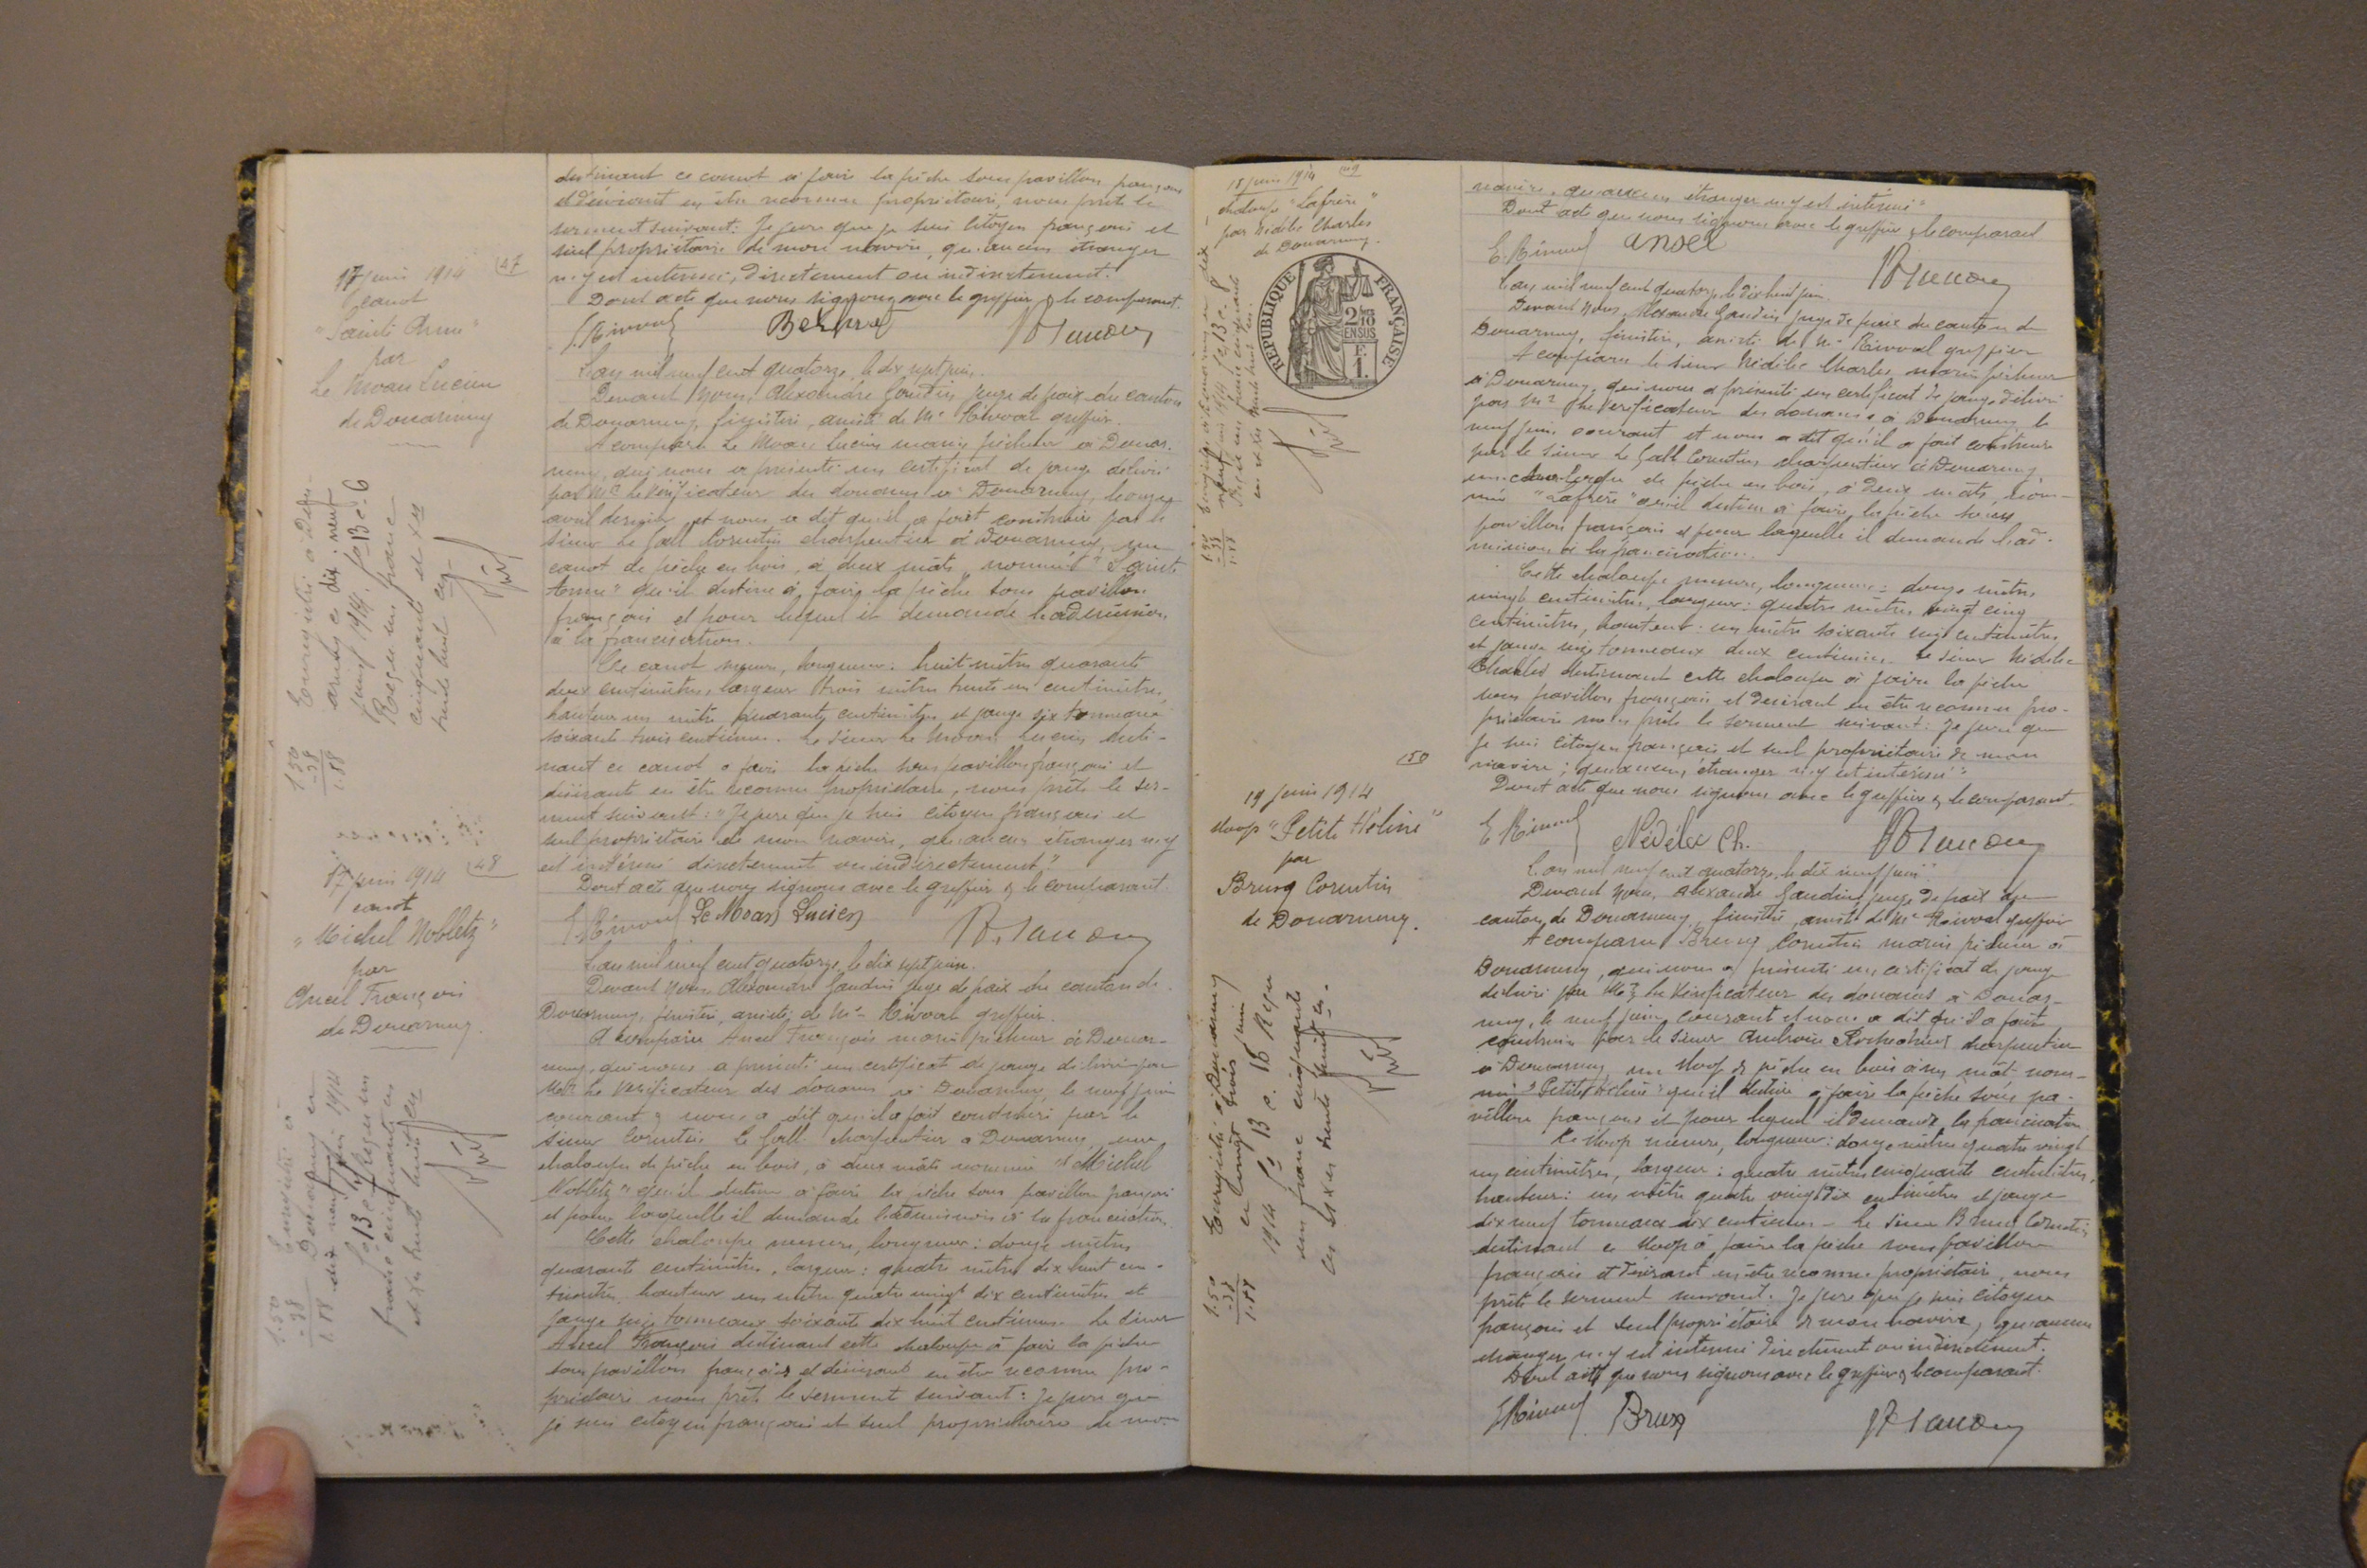 destinant ce canot à faire la pêche sous pavillon français
et désirant en être reconnu propriétaire, nous prête le
serment suivant: Je jure que je suis citoyen français et
seul propriétaire de mon navire, qu'aucun étranger
n'y est intéressé, directement ou indirectement.
Dont acte que nous signons avec le greffier & le comparant.
17 juin 1914
47
canot
"Sainte Anne"
par
Le Moan Lucien
de Douarnenez
Enregistré à Douar-
nenez ce dix neuf
juin 1914. fo 13 c. 6
Reçu un franc
cinquante et xes
trente huit ces
1.50
-38
1.88
L'an mil neuf cent quatorze, le dix sept juin.
Devant Nous, Alexandre Gaudin juge de paix du canton
de Douarnenez, finistère, assisté de Me Rivoal greffier.
A comparu Le Moan Lucien marin pêcheur à Douar-
nenez, qui nous a présenté un certificat de jauge délivré
par Mr le Vérificateur des douanes à Douarnenez, le onze
avril dernier, et nous a dit qu'il a fait construire par le
sieur Le Gall Corentin charpentier à Douarnenez, un
canot de pêche en bois, à deux mâts, nommé "Sainte
Anne" qu'il destine à faire la pêche sous pavillon
français et pour lequel il demande l'admission
à la francisation.
Ce canot mesure, longueur: huit mètres quarante
deux centimètres, largeur trois mètres trente un centimètres,
hauteur un mètre quarante centimètres et jauge six tonneaux
soixante trois centièmes. Le sieur Le Moan Lucien desti-
nant ce canot à faire la pêche sous pavillon français et
désirant en être reconnu propriétaire, nous prête le ser-
ment suivant: "Je jure que je suis citoyen français et
seul propriétaire de mon navire, qu'aucun étranger n'y
est intéressé directement ou indirectement"
Dont acte que nous signons avec le greffier & le comparant.
Le Moan Lucien
17 juin 1914
48
canot
"Michel Nobletz"
par
Ancel François
de Douarnenez.
Enregistré à
Douarnenez ce
dix neuf juin 1914
fo 13 c. 7 Reçu un
franc cinquante ces
et xes trente huit ces
1.50
-38
1.88
L'an mil neuf cent quatorze, le dix sept juin.
Devant Nous, Alexandre Gaudin juge de paix du canton de
Douarnenez, finistère, assisté de Me Rivoal greffier.
A comparu Ancel François marin pêcheur à Douar-
nenez, qui nous a présenté un certificat de jauge délivré par
Mr le Vérificateur des douanes à Douarnenez, le neuf juin
courant & nous a dit qu'il a fait construire par le
sieur Corentin Le Gall charpentier à Douarnenez une
chaloupe de pêche en bois, à deux mâts nommée "Michel
Nobletz" qu'il destine à faire la pêche sous pavillon français
et pour laquelle il demande l'admission à la francisation.
Cette chaloupe mesure, longueur: douze mètres
quarante centimètres, largeur: quatre mètres dix huit cen-
timètres, hauteur un mètre quatre vingt dix centimètres et
jauge seize tonneaux soixante dix huit centièmes. Le sieur
Ancel François destinant cette chaloupe à faire la pêche
sous pavillon français et désirant en être reconnu pro-
priétaire nous prête le serment suivant: Je jure que
je suis citoyen français et seul propriétaire de mon
navire, qu'aucun étranger n'y est intéressé"
Dont acte que nous signons avec le greffier & le comparant
ansel
18 juin 1914
149
chaloupe "Lafrère"
par Nédélec Charles
de Douarnenez.
REPUBLIQUE FRANÇAISE
2/10
EN SUS
F.
1.
1.50
-38
1.88
L'an mil neuf cent quatorze, le dix huit juin.
Devant Nous, Alexandre Gaudin juge de paix du canton de
Douarnenez, finistère, assisté de Me Rivoal greffier
A comparu le sieur Nédélec Charles, marin pêcheur
à Douarnenez, qui nous a présenté un certificat de jauge délivré
par Mr le Vérificateur des douanes à Douarnenez le
neuf juin courant et nous a dit qu'il a fait construire
par le sieur Le Gall Corentin charpentier à Douarnenez
une chaloupe de pêche en bois, à deux mâts, nom-
mée "Lafrère" qu'il destine à faire la pêche sous
pavillon français et pour laquelle il demande l'ad-
mission à la francisation.
Cette chaloupe mesure, longueur: douze mètres
vingt centimètres, largeur: quatre mètres vingt cinq
centimètres, hauteur: un mètre soixante centimètres
et jauge seize tonneaux deux centièmes. Le sieur Nédélec
Charles destinant cette chaloupe à faire la pêche
sous pavillon français et désirant en être reconnu pro-
priétaire nous prête le serment suivant: Je jure que
je suis citoyen français et seul propriétaire de mon
navire; qu'aucun étranger n'y est intéressé"
Dont acte que nous signons avec le greffier & le comparant.
Nédélec Ch.
150
19 juin 1914
sloop "Petite Hélène"
par
Brusq Corentin
de Douarnenez.
Enregistré à Douarnenez
ce vingt trois juin
1914 fo 13 c. 16 Reçu
un franc cinquante
ces et xes trente huit ces.
1.50
-38
1.88
L'an mil neuf cent quatorze, le dix neuf juin.
Devant Nous, Alexandre Gaudin juge de paix du
canton de Douarnenez, finistère, assisté de Me Rivoal greffier
A comparu Brusq Corentin marin pêcheur à
Douarnenez, qui nous a présenté un certificat de jauge
délivré par Mr le Vérificateur des douanes à Douar-
nenez, le neuf juin courant et nous a dit qu'il a fait
construire par le sieur charpentier
à Douarnenez, un sloop de pêche en bois à un mât nom-
mé "Petite Hélène" qu'il destine à faire la pêche sous pa-
villon français et pour lequel il demande la francisation
Le sloop mesure, longueur: douze mètres quatre vingt
un centimètres, largeur: quatre mètres cinquante centimètres,
hauteur: un mètre quatre vingt dix centimètres et jauge
dix neuf tonneaux dix centièmes. Le sieur Brusq Corentin
destinant ce sloop à faire la pêche sous pavillon
français et désirant en être reconnu propriétaire, nous
prête le serment suivant: Je jure que je suis citoyen
français et seul propriétaire de mon navire, qu'aucun
étranger n'y est intéressé directement ou indirectement.
Dont acte que nous signons avec le greffier & le comparant.
Brusq